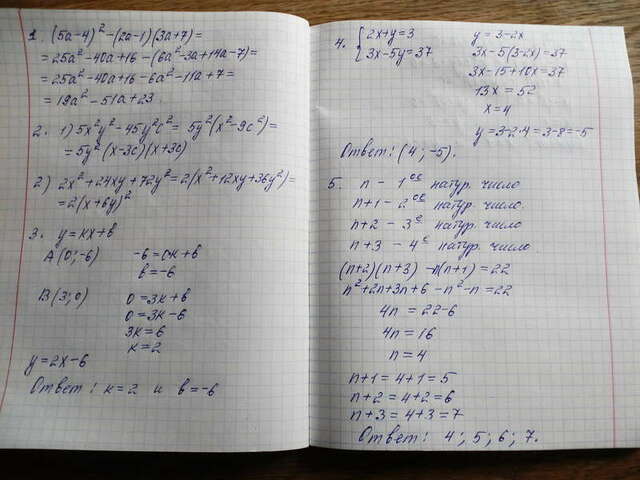 1. (5a-4)² -(2a-1)(3a+7)=
= 25a² -40a+16 -(6a² -3a+14a-7)=
= 25a² -40a+16 -6a² -11a +7 =
= 19a² -51a +23.
2. 1) 5x²y² -45y²c² = 5y²(x² -9c²)=
= 5y²(x-3c)(x+3c)
2) 2x² +24xy +72y² =2(x² +12xy+36y²)=
=2(x+6y)²
3. y=кx+в
A(0;-6) -6=0к+в
в=-6
B(3;0) 0=3к+в
0=3к-6
3к=6
к=2
y=2x-6
Ответ: к=2 и в=-6
4. {2x+y=3 y=3-2x
3x-5y=37 3x-5(3-2x)=37
3x-15+10x=37
13x=52
x=4
y=3-2·4=3-8=-5
Ответ: (4; -5).
5. n - 1ое натур. число
n+1 - 2ое натур. число
n+2 - 3е натур. число
n+3 - 4е натур. число
(n+2)(n+3) -n(n+1)=22
n²+2n+3n+6 -n²-n=22
4n = 22-6
4n=16
n=4
n+1=4+1=5
n+2=4+2=6
n+3=4+3=7
Ответ: 4; 5; 6; 7.